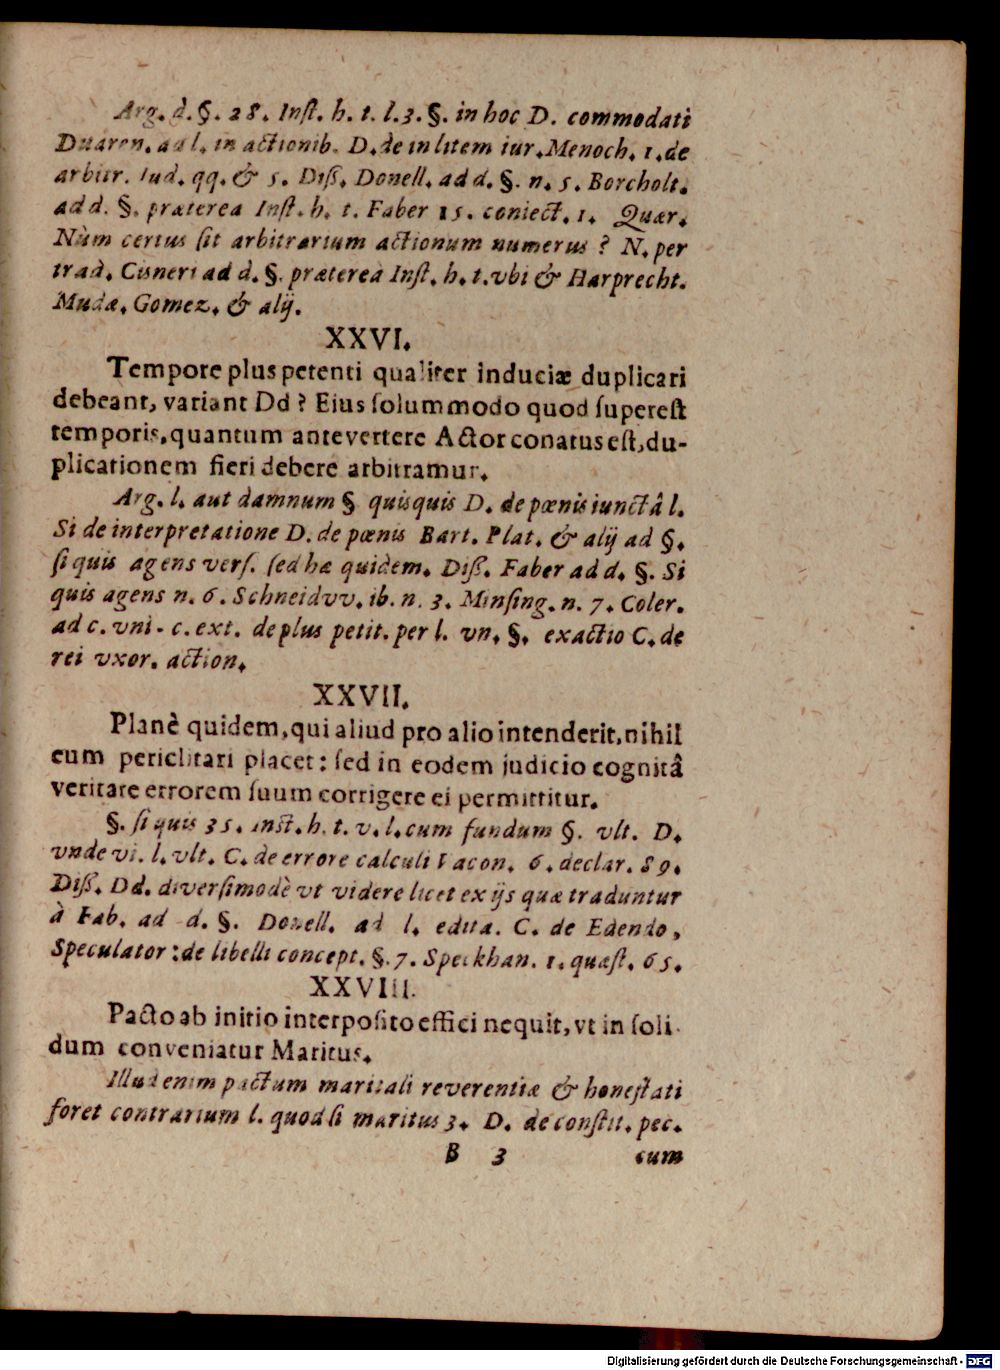 Arg. d. §. 28. Inſt. h. t. l. 3. §. in hoc D. commodati
Duaren. ad l. in actionib. D. de in litem iur. Menoch. 1. de
arbitr. Iud. qq. & 5. Diſſ. Donell. ad d. §. n. 5. Borcholt.
ad d. §. præterea Inſt. h. t. Faber 15. coniect. 1. Quær.
Nùm certus ſit arbitrarium actionum numerus? N. per
trad. Cisneri ad d. §. præterea Inſt. h. t. vbi & Harprecht.
Mudæ, Gomez. & alij.
XXVI.
Tempore plus petenti qualiter induciæ duplicari
debeant, variant Dd? Eius ſolummodo quod ſupereſt
temporis, quantum antevertere Actor conatus eſt, du-
plicationem fieri debere arbitramur.
Arg. l. aut damnum § quisquis D. de pœnis iunctâ l.
Si de interpretatione D. de pœnis Bart. Plat. & alij ad §.
ſi quis agens verſ. ſed hæ quidem. Diſſ. Faber ad d. §. Si
quis agens n. 6. Schneidvv. ib. n. 3. Minſing. n. 7. Coler.
ad c. vni- c. ext. de plus petit. per l. vn. §. exactio C. de
rei vxor. action.
XXVII.
Planè quidem, qui aliud pro alio intenderit, nihil
eum periclitari placet: ſed in eodem judicio cognitâ
veritate errorem ſuum corrigere ei permittitur.
§. ſi quis 35. inſt. h. t. v. l. cum fundum §. vlt. D.
vnde vi. l. vlt. C. de errore calculi Vacon. 6. declar. 89.
Diſſ. Dd. diverſimodè vt videre licet ex ijs quæ traduntur
à Fab. ad d. §. Donell. ad l. edita. C. de Edendo,
Speculator: de libelli concept. §. 7. Speckhan. 1. quæſt. 65.
XXVIII.
Pacto ab initio interpoſito effici nequit, vt in ſoli-
dum conveniatur Maritus.
Illud enim pactum maritali reverentiæ & honeſtati
foret contrarium l. quod ſi maritus 3. D. de conſtit. pec.
B 3 cum
Digitalisierung gefördert durch die Deutsche Forschungsgemeinschaft - DFG